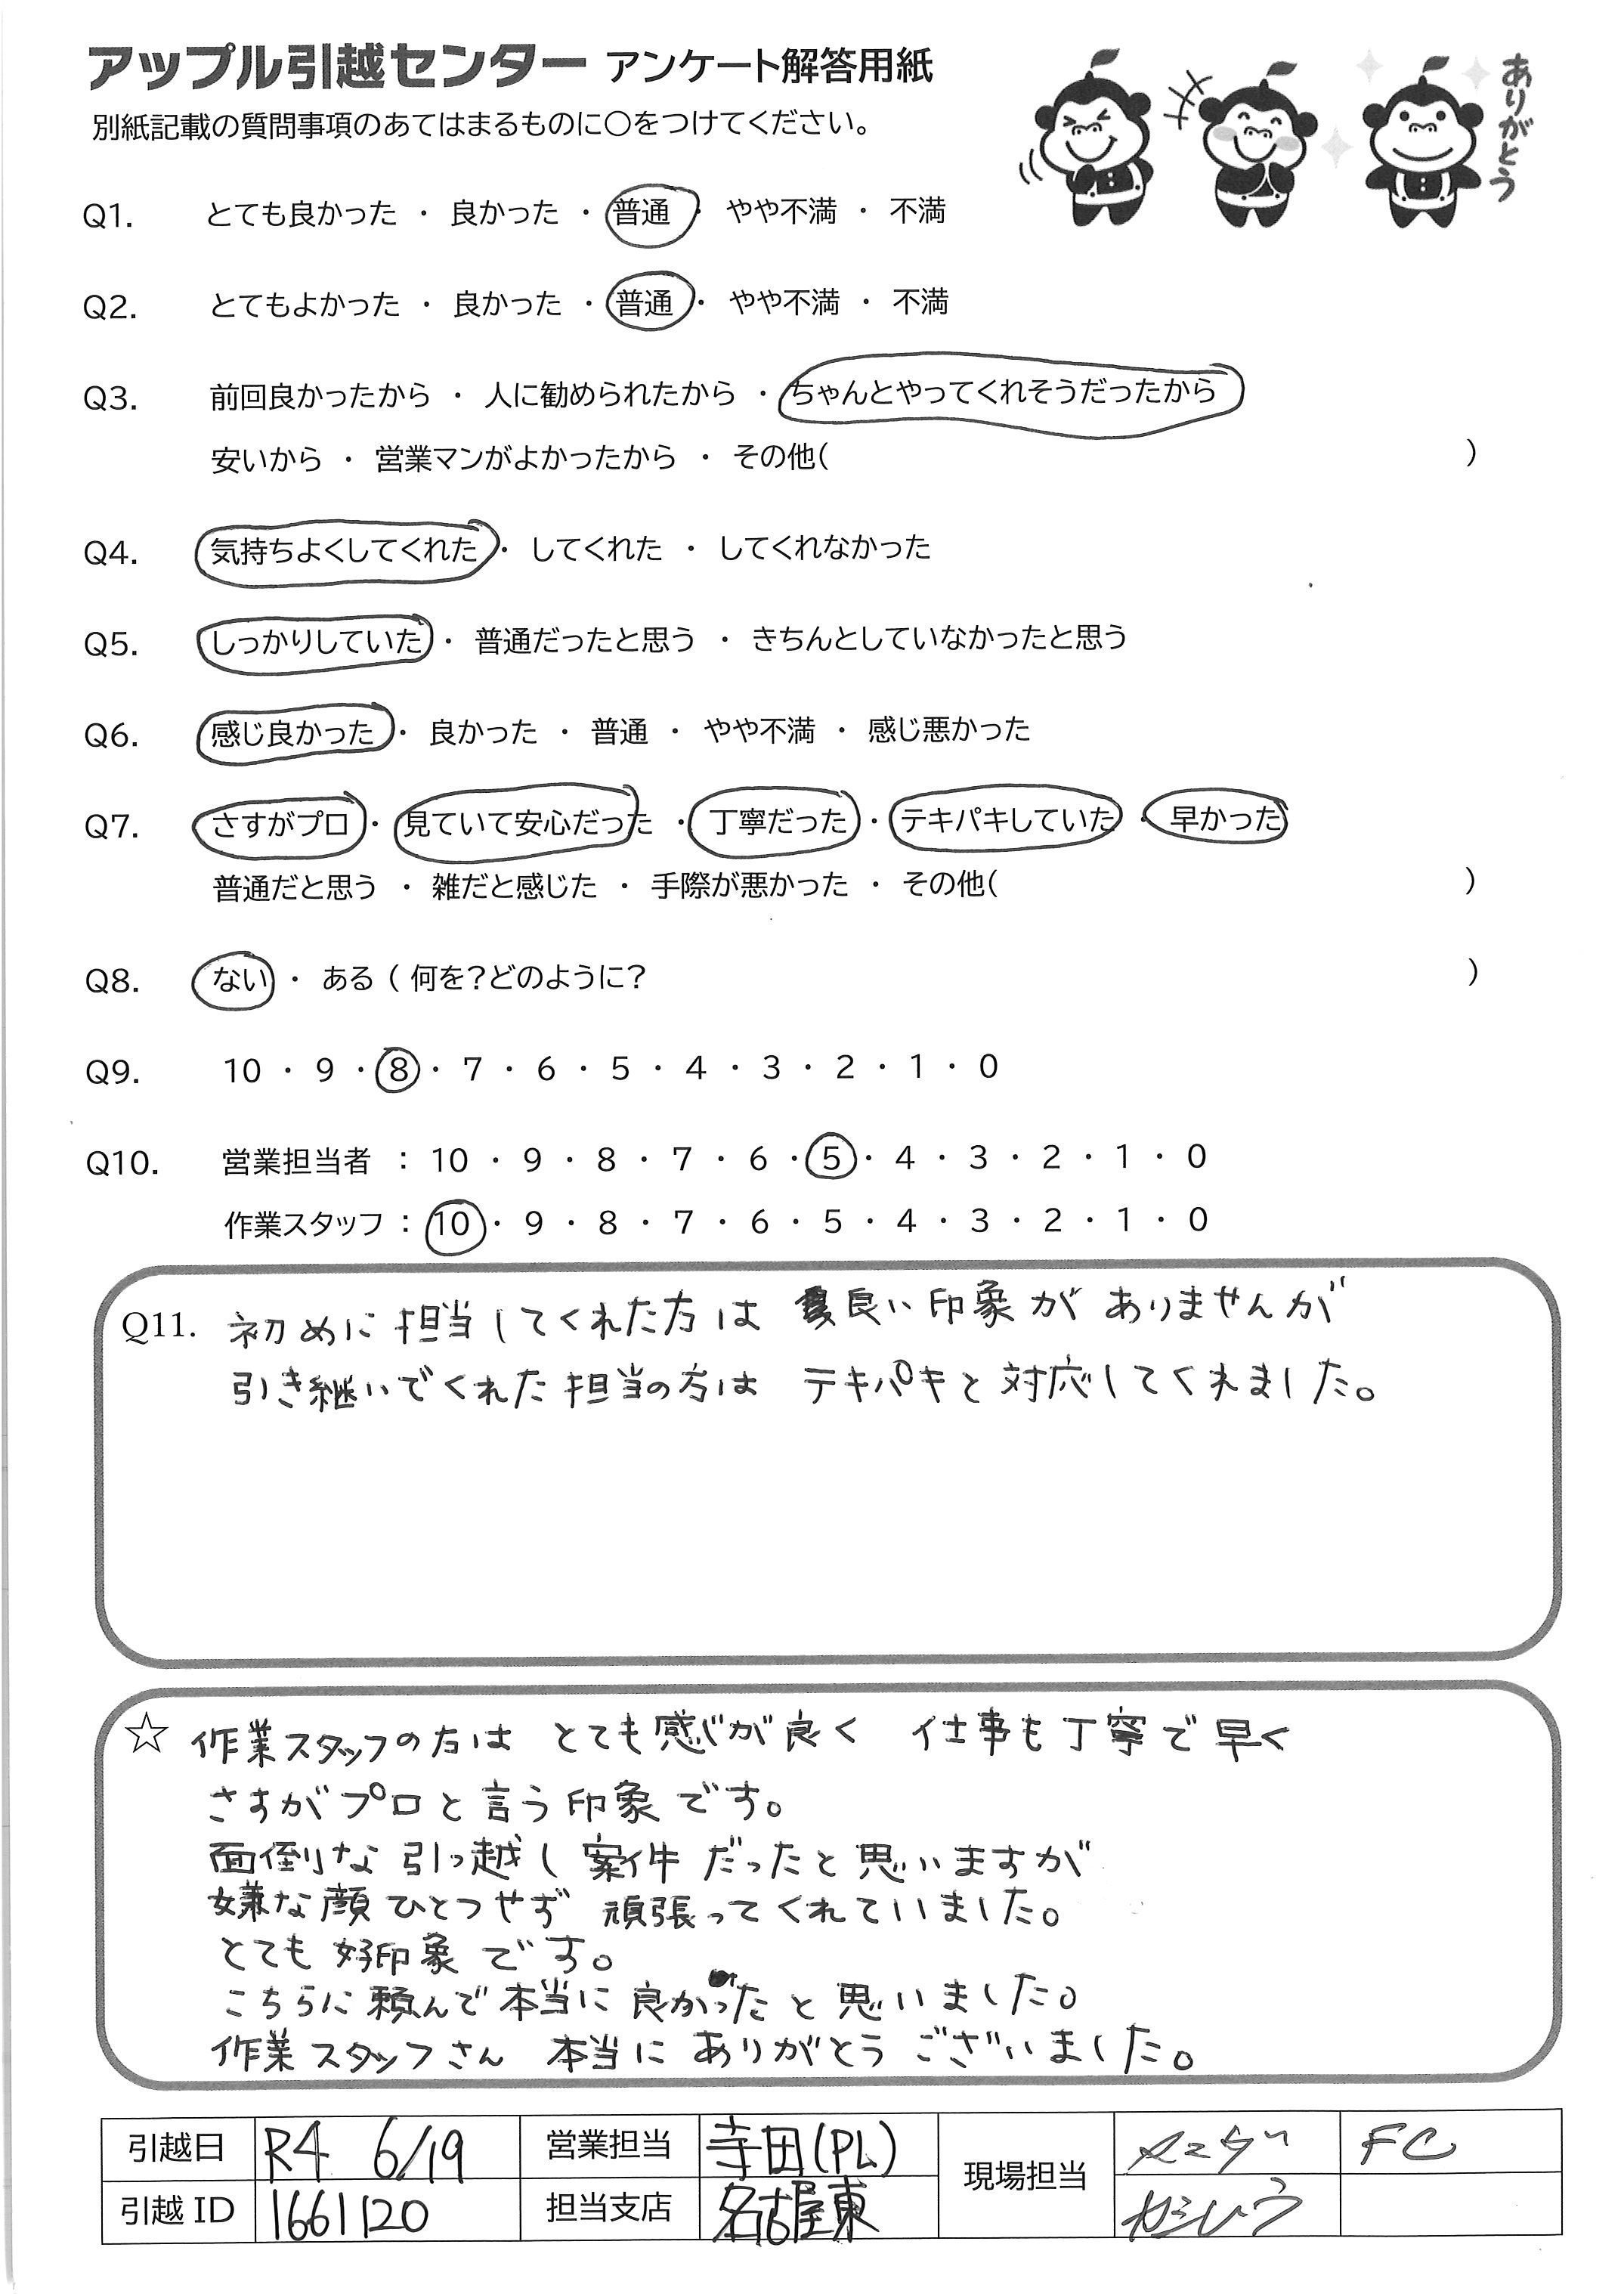 アップル引越センター アンケート解答用紙
別紙記載の質問事項のあてはまるものに○をつけてください。
ありがとう
Q1. とても良かった ・ 良かった ・ 普通 ・ やや不満 ・ 不満
Q2. とてもよかった ・ 良かった ・ 普通 ・ やや不満 ・ 不満
Q3. 前回良かったから ・ 人に勧められたから ・ ちゃんとやってくれそうだったから
安いから ・ 営業マンがよかったから ・ その他( )
Q4. 気持ちよくしてくれた ・ してくれた ・ してくれなかった
Q5. しっかりしていた ・ 普通だったと思う ・ きちんとしていなかったと思う
Q6. 感じ良かった ・ 良かった ・ 普通 ・ やや不満 ・ 感じ悪かった
Q7. さすがプロ ・ 見ていて安心だった ・ 丁寧だった ・ テキパキしていた ・ 早かった
普通だと思う ・ 雑だと感じた ・ 手際が悪かった ・ その他( )
Q8. ない ・ ある ( 何を?どのように? )
Q9. 10 ・ 9 ・ 8 ・ 7 ・ 6 ・ 5 ・ 4 ・ 3 ・ 2 ・ 1 ・ 0
Q10. 営業担当者 : 10 ・ 9 ・ 8 ・ 7 ・ 6 ・ 5 ・ 4 ・ 3 ・ 2 ・ 1 ・ 0
作業スタッフ : 10 ・ 9 ・ 8 ・ 7 ・ 6 ・ 5 ・ 4 ・ 3 ・ 2 ・ 1 ・ 0
Q11. 初めに担当してくれた方は 良い印象がありませんが
引き継いでくれた担当の方は テキパキと対応してくれました。
☆ 作業スタッフの方は とても感じが良く 仕事も丁寧で早く
さすがプロと言う印象です。
面倒な引っ越し案件だったと思いますが
嫌な顔ひとつせず 頑張ってくれていました。
とても好印象です。
こちらに頼んで本当に良かったと思いました。
作業スタッフさん 本当にありがとうございました。
引越日 R4 6/19 営業担当 寺田(PL) 現場担当 FC
引越ID 1661120 担当支店 名古屋東